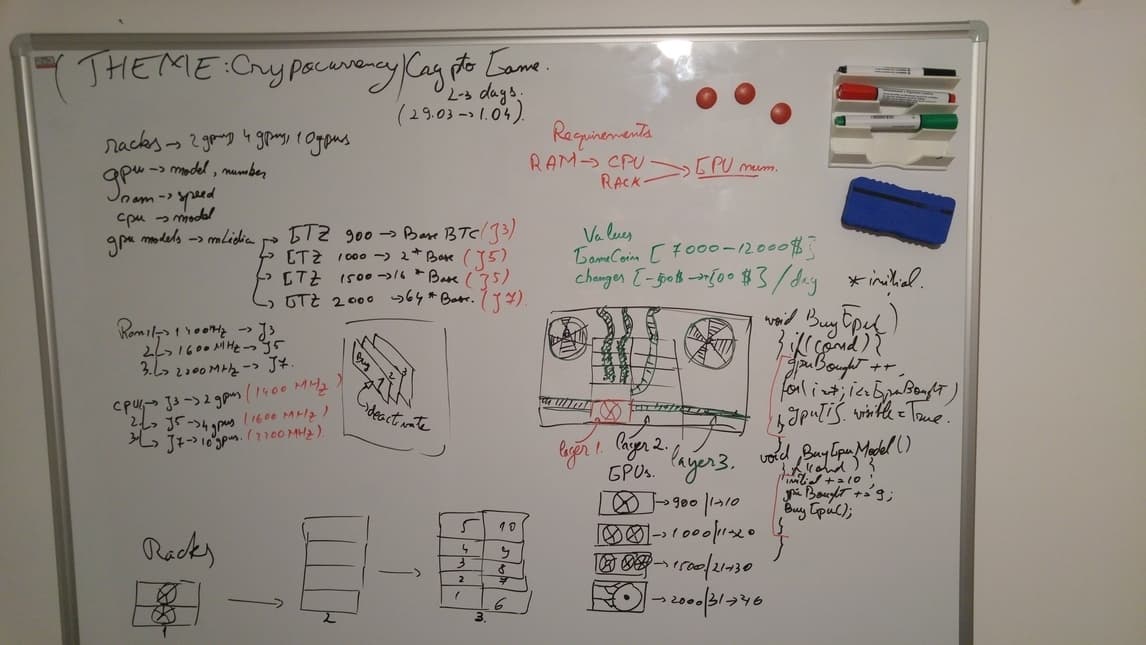 (THEME: Crypocurrency) Crypto Game.
2-3 days.
(29.03 → 1.04).
racks → 2 gpus, 4 gpus, 10 gpus
gpu → model, number
ram → speed
cpu → model
gpu models → mLidia → GTZ 900 → Base BTC (J3)
→ GTZ 1000 → 2* Base (J5)
→ GTZ 1500 → 16* Base (J5)
→ GTZ 2000 → 64* Base. (J7)
Requirements
RAM → CPU → GPU num.
RACK
Values
GameCoin [7000 - 12000$]
changes [-500$ → +500$] / day
* initial.
Ram 1. → 1400MHz → J3
2. → 1600MHz → J5
3. → 2200MHz → J7.
CPU 1. → J3 → 2 gpus (1400 MHz)
2. → J5 → 4 gpus (1600 MHz)
3. → J7 → 10 gpus. (2200 MHz).
Buy 1 2 3
deactivate
layer 1. layer 2. layer 3.
void BuyGpu()
{ if (cond) {
gpuBought ++,
for (i=*; i<=GpuBought)
gpu[i]. visible = True.
}
}
void BuyGpuModel()
{ if (cond) {
initial += 10;
gpuBought += 9;
BuyGpu();
}
}
GPUs.
→ 900 / 1→10
→ 1000 / 11→20
→ 1500 / 21→30
→ 2000 / 31→40
Racks
1
→
2
→
5 10
4 9
3 8
2 7
1 6
3.